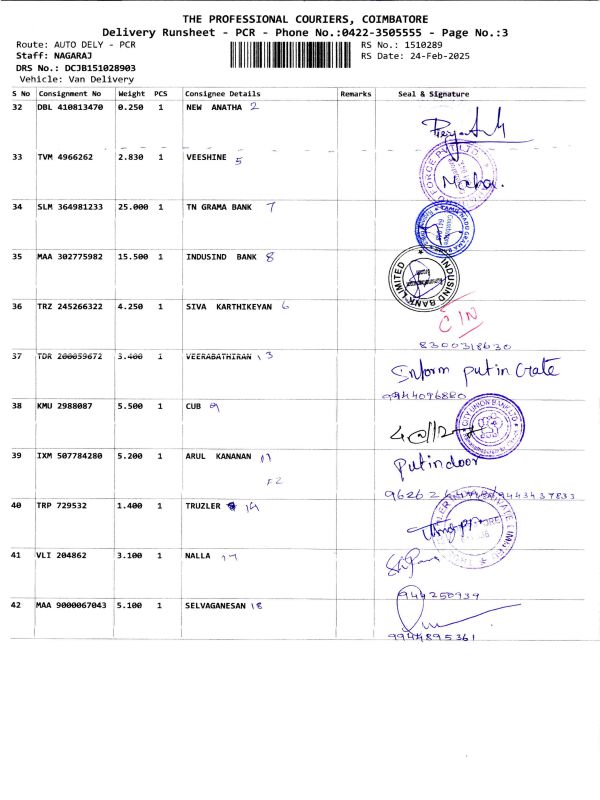 THE PROFESSIONAL COURIERS, COIMBATORE
Delivery Runsheet - PCR - Phone No.:0422-3505555 - Page No.:3
Route: AUTO DELY - PCR RS No.: 1510289
Staff: NAGARAJ RS Date: 24-Feb-2025
DRS No.: DCJB151028903
Vehicle: Van Delivery
S No Consignment No Weight PCS Consignee Details Remarks Seal & Signature
32 DBL 410813470 0.250 1 NEW ANATHA 2
33 TVM 4966262 2.830 1 VEESHINE 5
FORCE PVT LTD
Maha.
34 SLM 364981233 25.000 1 TN GRAMA BANK 7
35 MAA 302775982 15.500 1 INDUSIND BANK 8
INDUSIND BANK LIMITED
36 TRZ 245266322 4.250 1 SIVA KARTHIKEYAN 6
CIN
8300318630
37 TDR 200059672 3.400 1 VEERABATHIRAN 13
Inform put in Crate
9944096880
38 KMU 2988087 5.500 1 CUB 9
CITY UNION BANK LTD
39 IXM 507784280 5.200 1 ARUL KANANAN 11
Put indoor
F2
9443437833
40 TRP 729532 1.400 1 TRUZLER 14
PRIVATE LIMITED
41 VLI 204862 3.100 1 NALLA 17
944250939
42 MAA 9000067043 5.100 1 SELVAGANESAN 18
9944895361